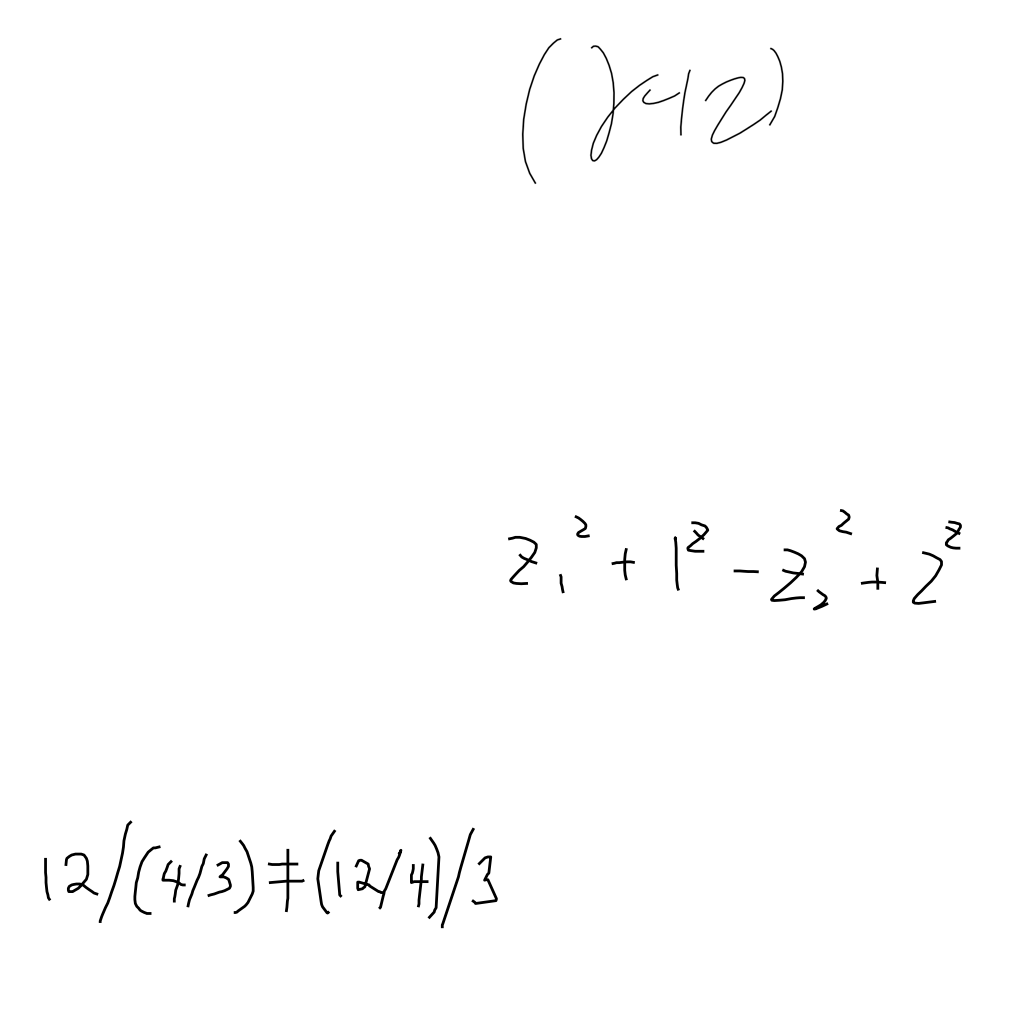 (γ+z)
z₁² + 1^z - z₂² + 2^z
12/(4/3)≠(12/4)/3